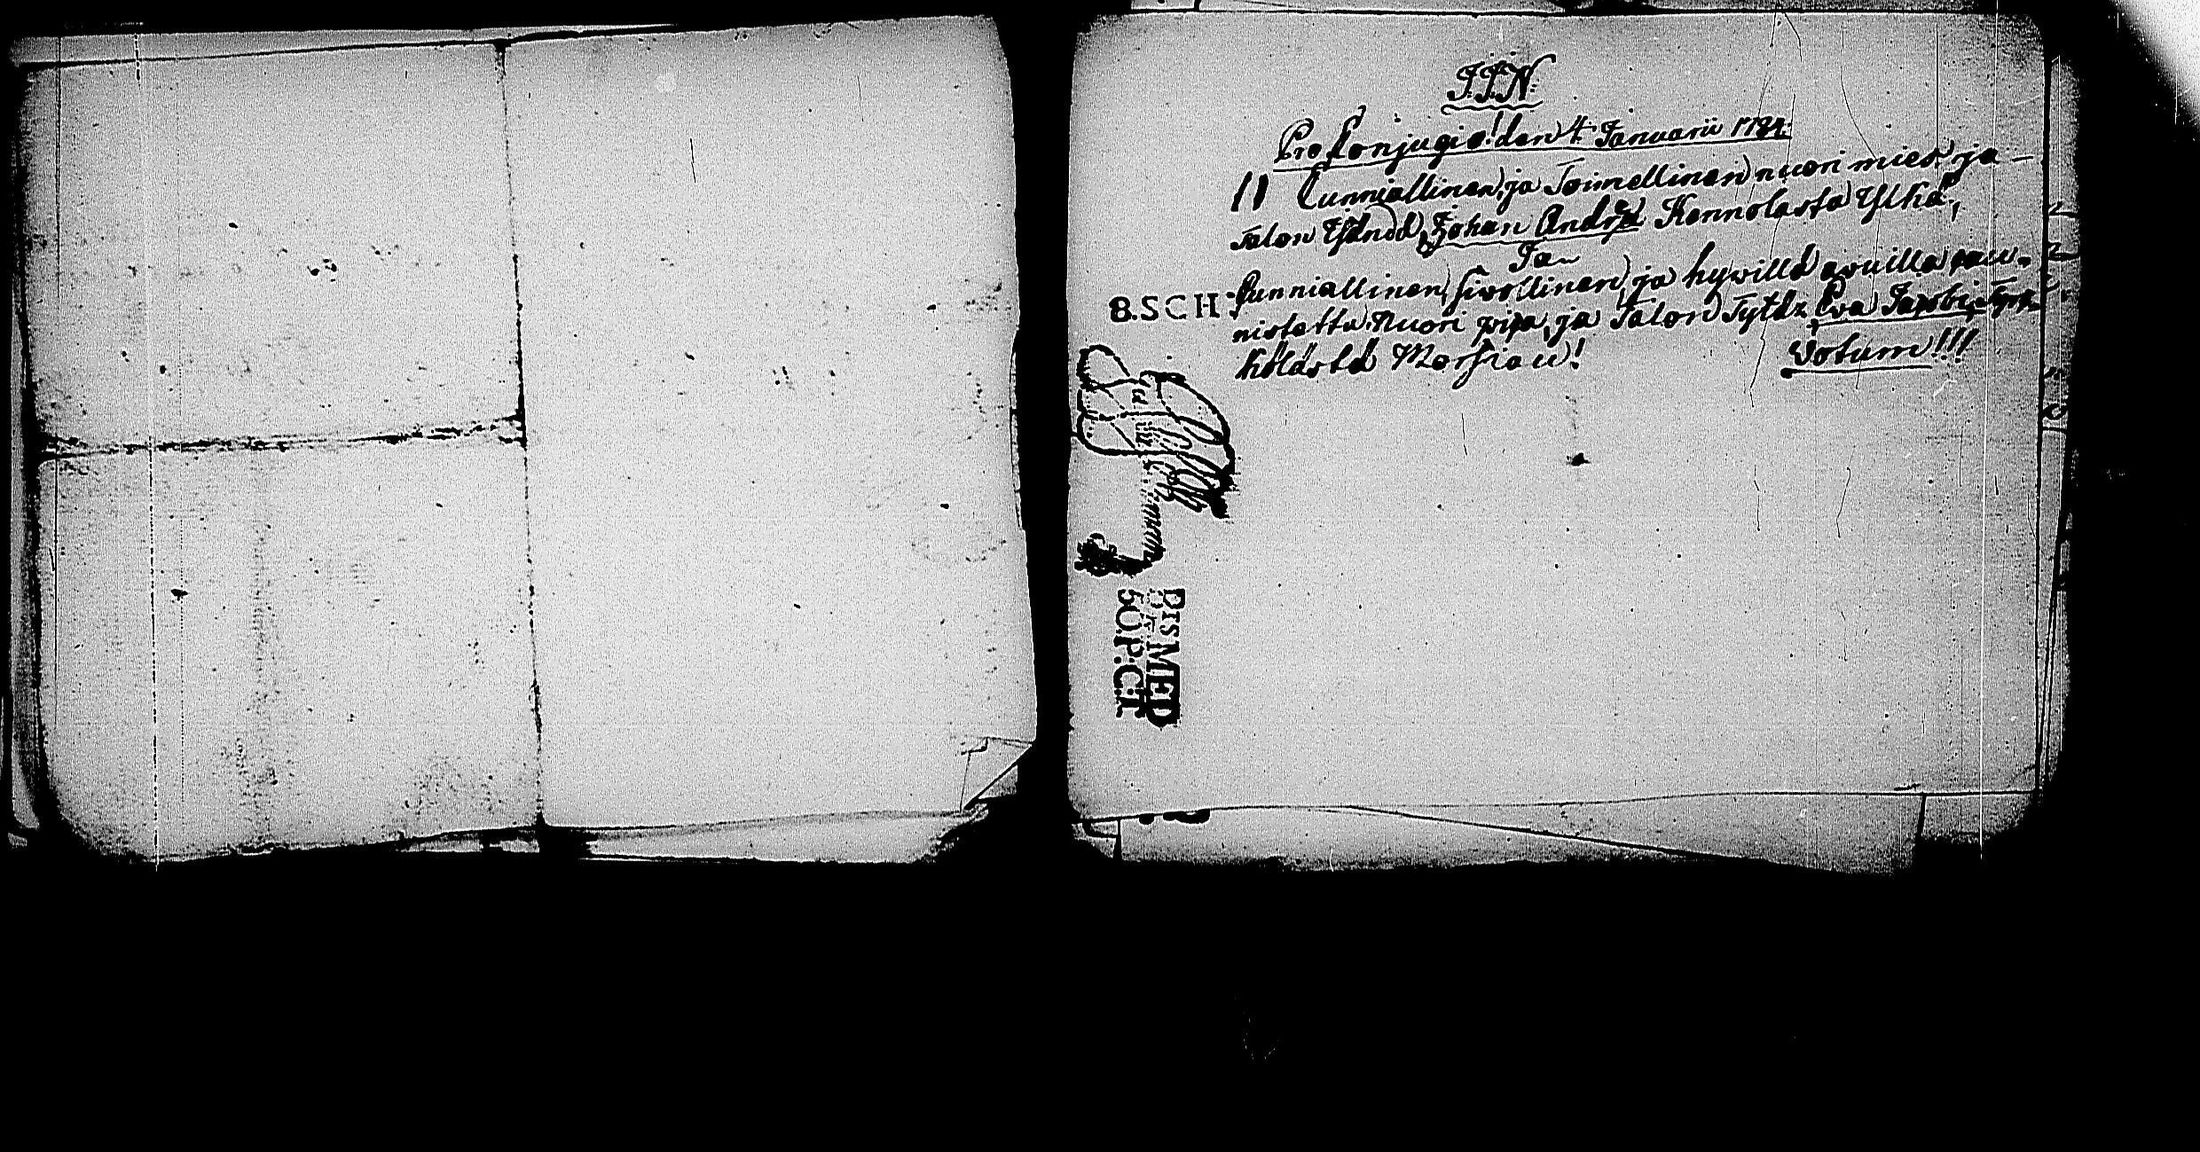 J.J.N.
Pro Conjugio! den 4 Januarii 1784.
11 Cunniallinen, ja Toimellinen nuori mies, ja –
Talon Isändä, Johan Andr Kennolasta Ylkä,
Ja
Cunniallinen, siwollinen, ja hywillä awuilla cau-
8.SCH
nistettu, Nuori pija, ja Talon Tytär Eva Jacobi
Morsian!
Votum!!!
DTSMED
50.P.C.T.